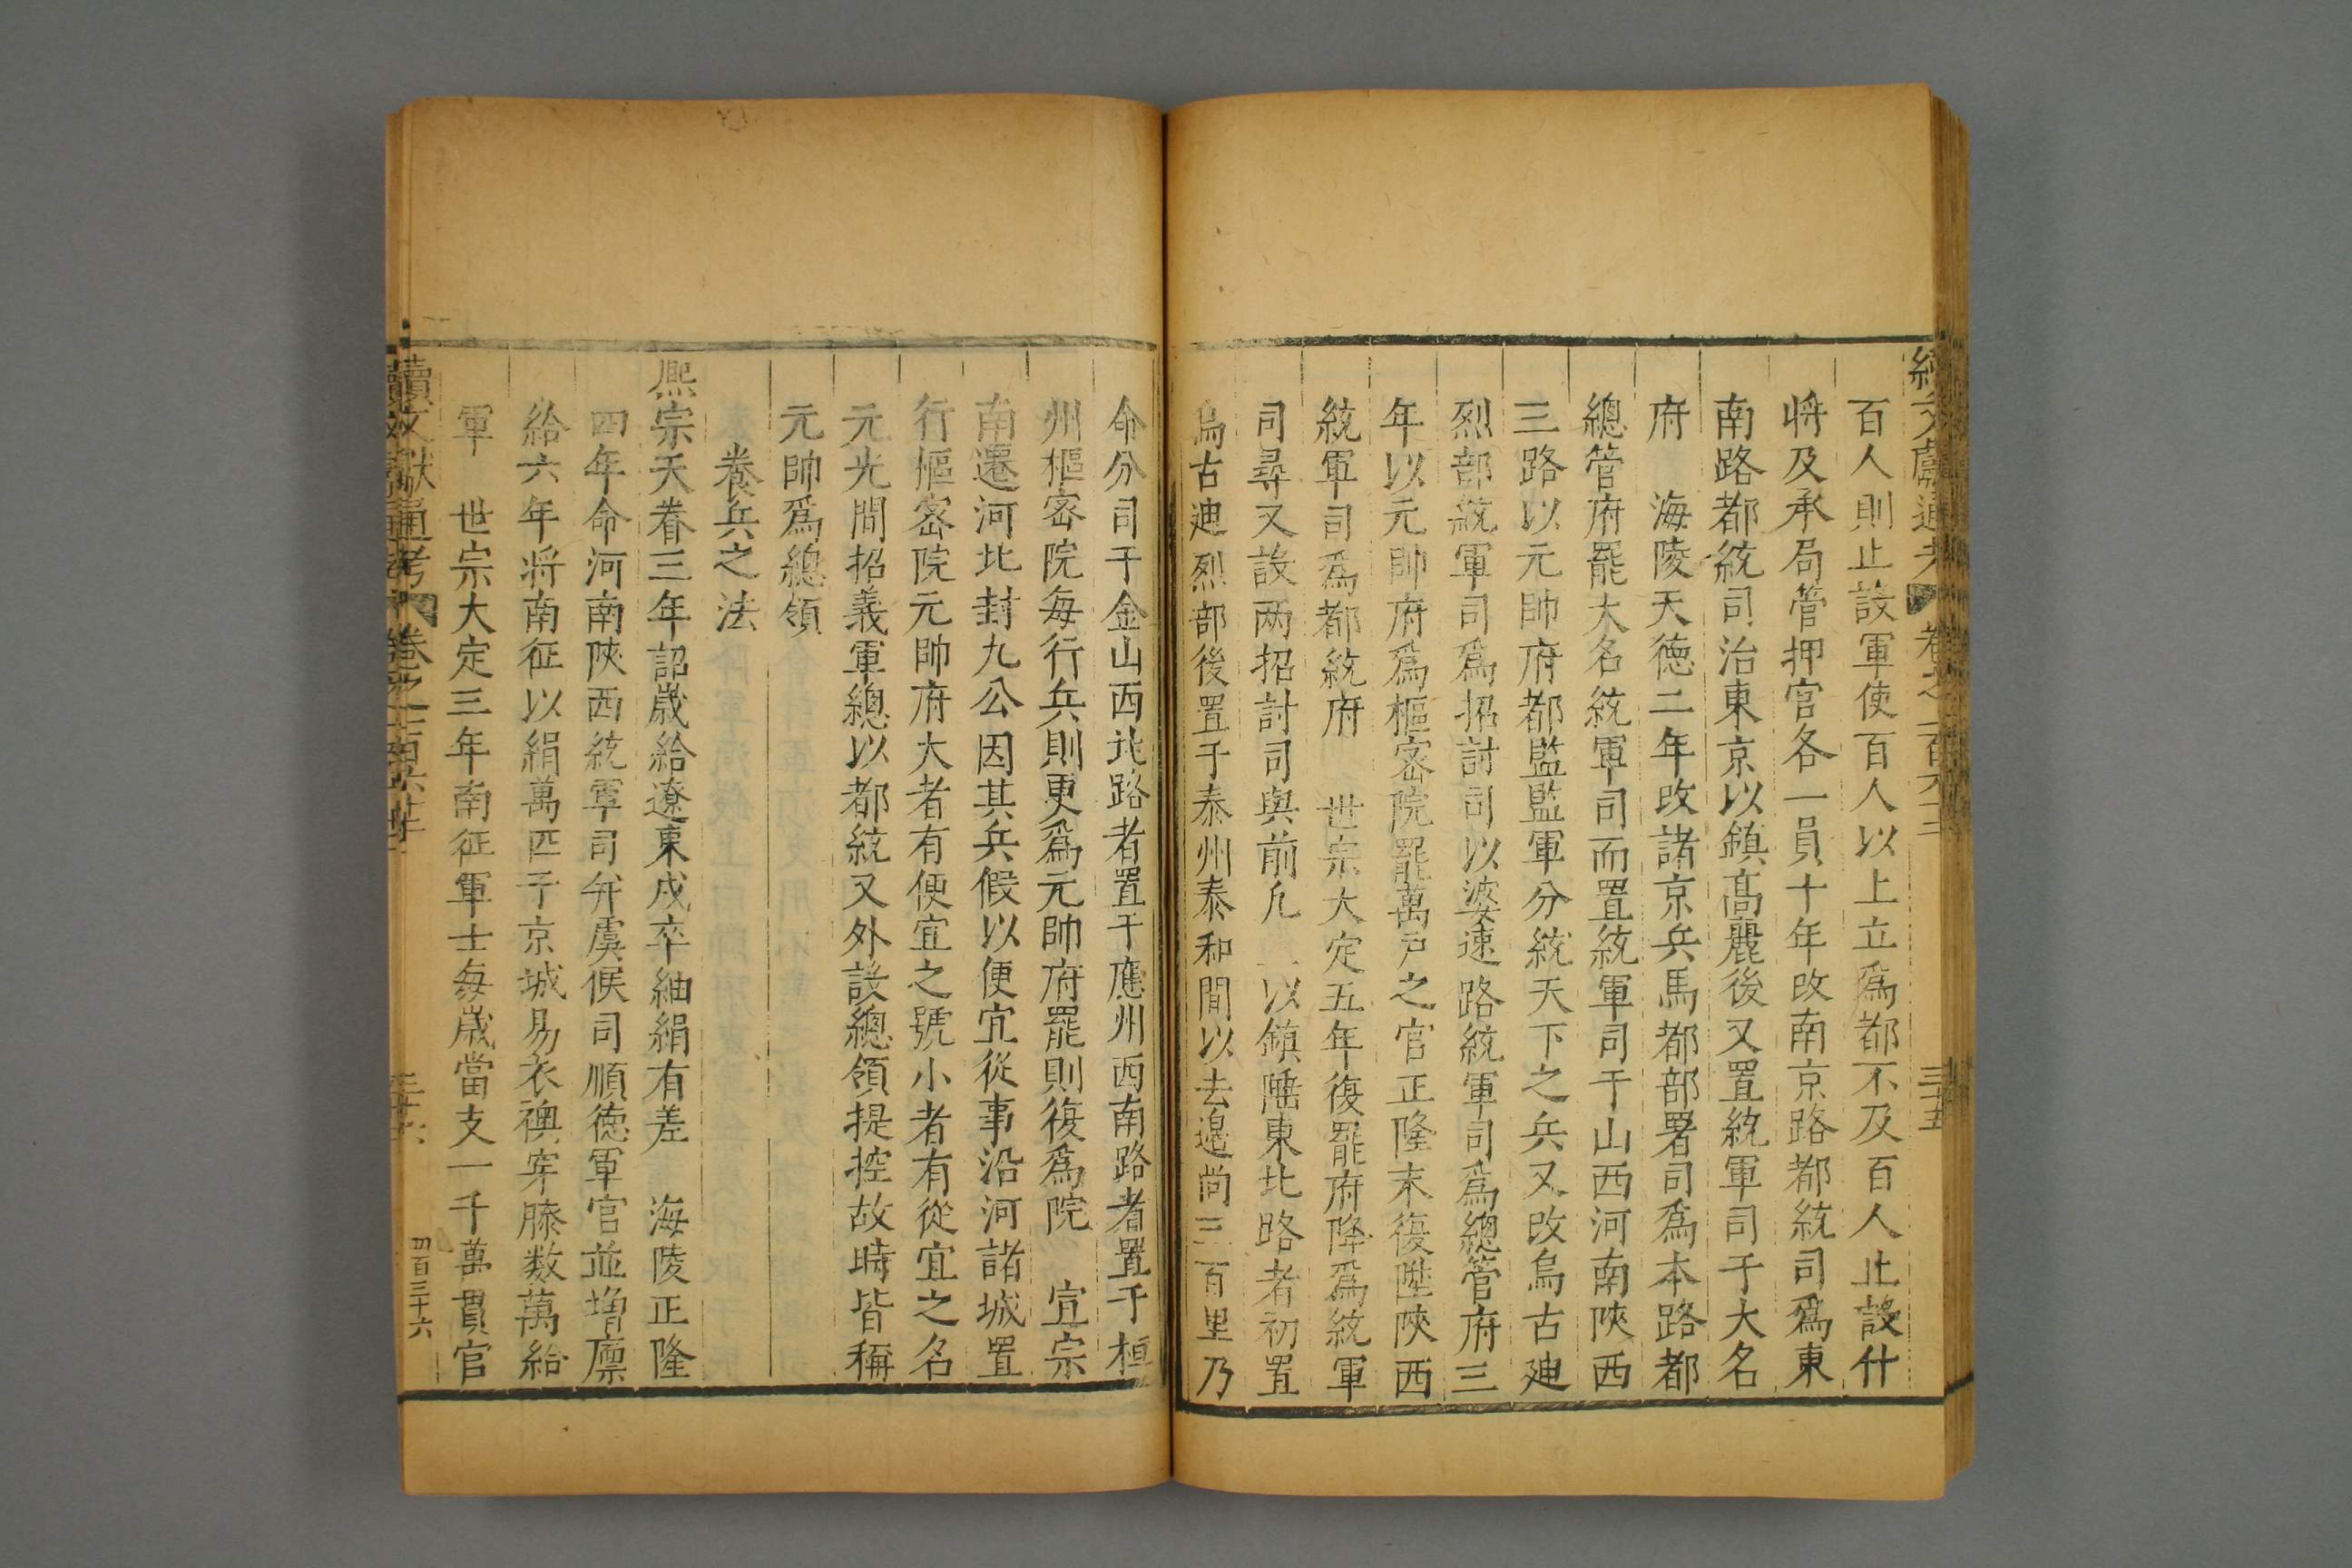 百人則止設軍使百人以上立爲都不及百人止設什
將及承局管押官各一員十年改南京路都統司爲東
南路都統司治東京以鎮髙麗後又置統軍司于大名
府　海陵天德二年改諸京兵馬都部署司爲本路都
總管府罷大名統軍司而置統軍司于山西河南陝西
三路以元帥府都監監軍分統天下之兵又改烏古廸
烈部統軍司爲招討司以婆速路統軍司爲總管府三
年以元帥府爲樞密院罷萬戸之官正隆末復陞陝西
統軍司爲都統府　世宗大定五年復罷府降爲統軍
司尋又設两招討司與前凡　以鎮陲東北路者初置
烏古廸烈部後置于泰州泰和間以去邊尚三百里乃
命分司于金山西北路者置于應州西南路者置于桓
州樞密院每行兵則更爲元帥府罷則復爲院　宣宗
南遷河北封九公因其兵假以便宜從事沿河諸城置
行樞密院元帥府大者有便宜之號小者有從宜之名
元光間招義軍總以都統又外設總領提控故時皆稱
元帥爲總領
養兵之法
熈宗天眷三年詔歲給遼東戍卒紬絹有差　海陵正隆
四年命河南陝西統軍司并虞候司順德軍官並增廪
給六年將南征以絹萬匹于京城易衣襖穿膝数萬給
軍　世宗大定三年南征軍士每歲當支一千萬貫官
續文獻通考　卷之一百六十二
三十六
四百三十六